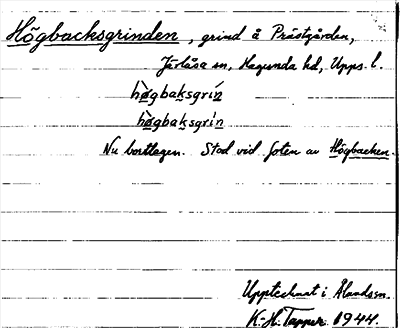 Högbacksgrinden, grind å Prästgården,
Järlåsa sn, Hagunda hd, Upps. l.
hògbaksgrín
hògbaksgrín
Nu borttagen. Stod vid foten av Högbacken.
Upptecknat i Ålandssn.
K.-H. Tapper 1944.